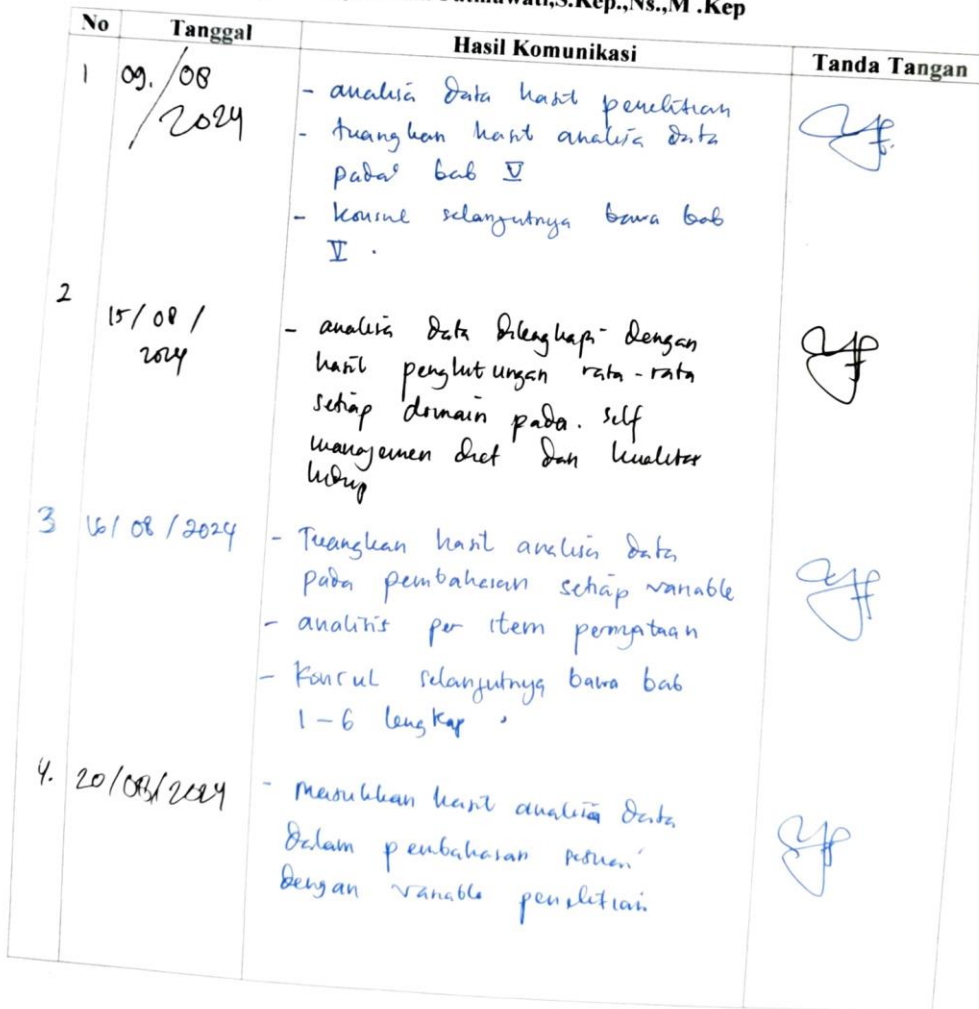 S.Kep.,Ns.,M .Kep
No Tanggal Hasil Komunikasi Tanda Tangan
1 09./08/2024
- analisa data hasil penelitian
- tuangkan hasil analisa data
pada bab V
- konsul selanjutnya bawa bab
V .
2 15/08/2024
- analisa data dilengkapi dengan
hasil penghitungan rata-rata
setiap domain pada. self
manajemen diet dan kualitas
hidup
3 16/08/2024
- Tuangkan hasil analisa data
pada pembahasan setiap variable
- analisis per item pernyataan
- Konsul selanjutnya bawa bab
1-6 lengkap
4. 20/08/2024
- masukkan hasil analisa data
dalam pembahasan sesuai
dengan variable penelitian